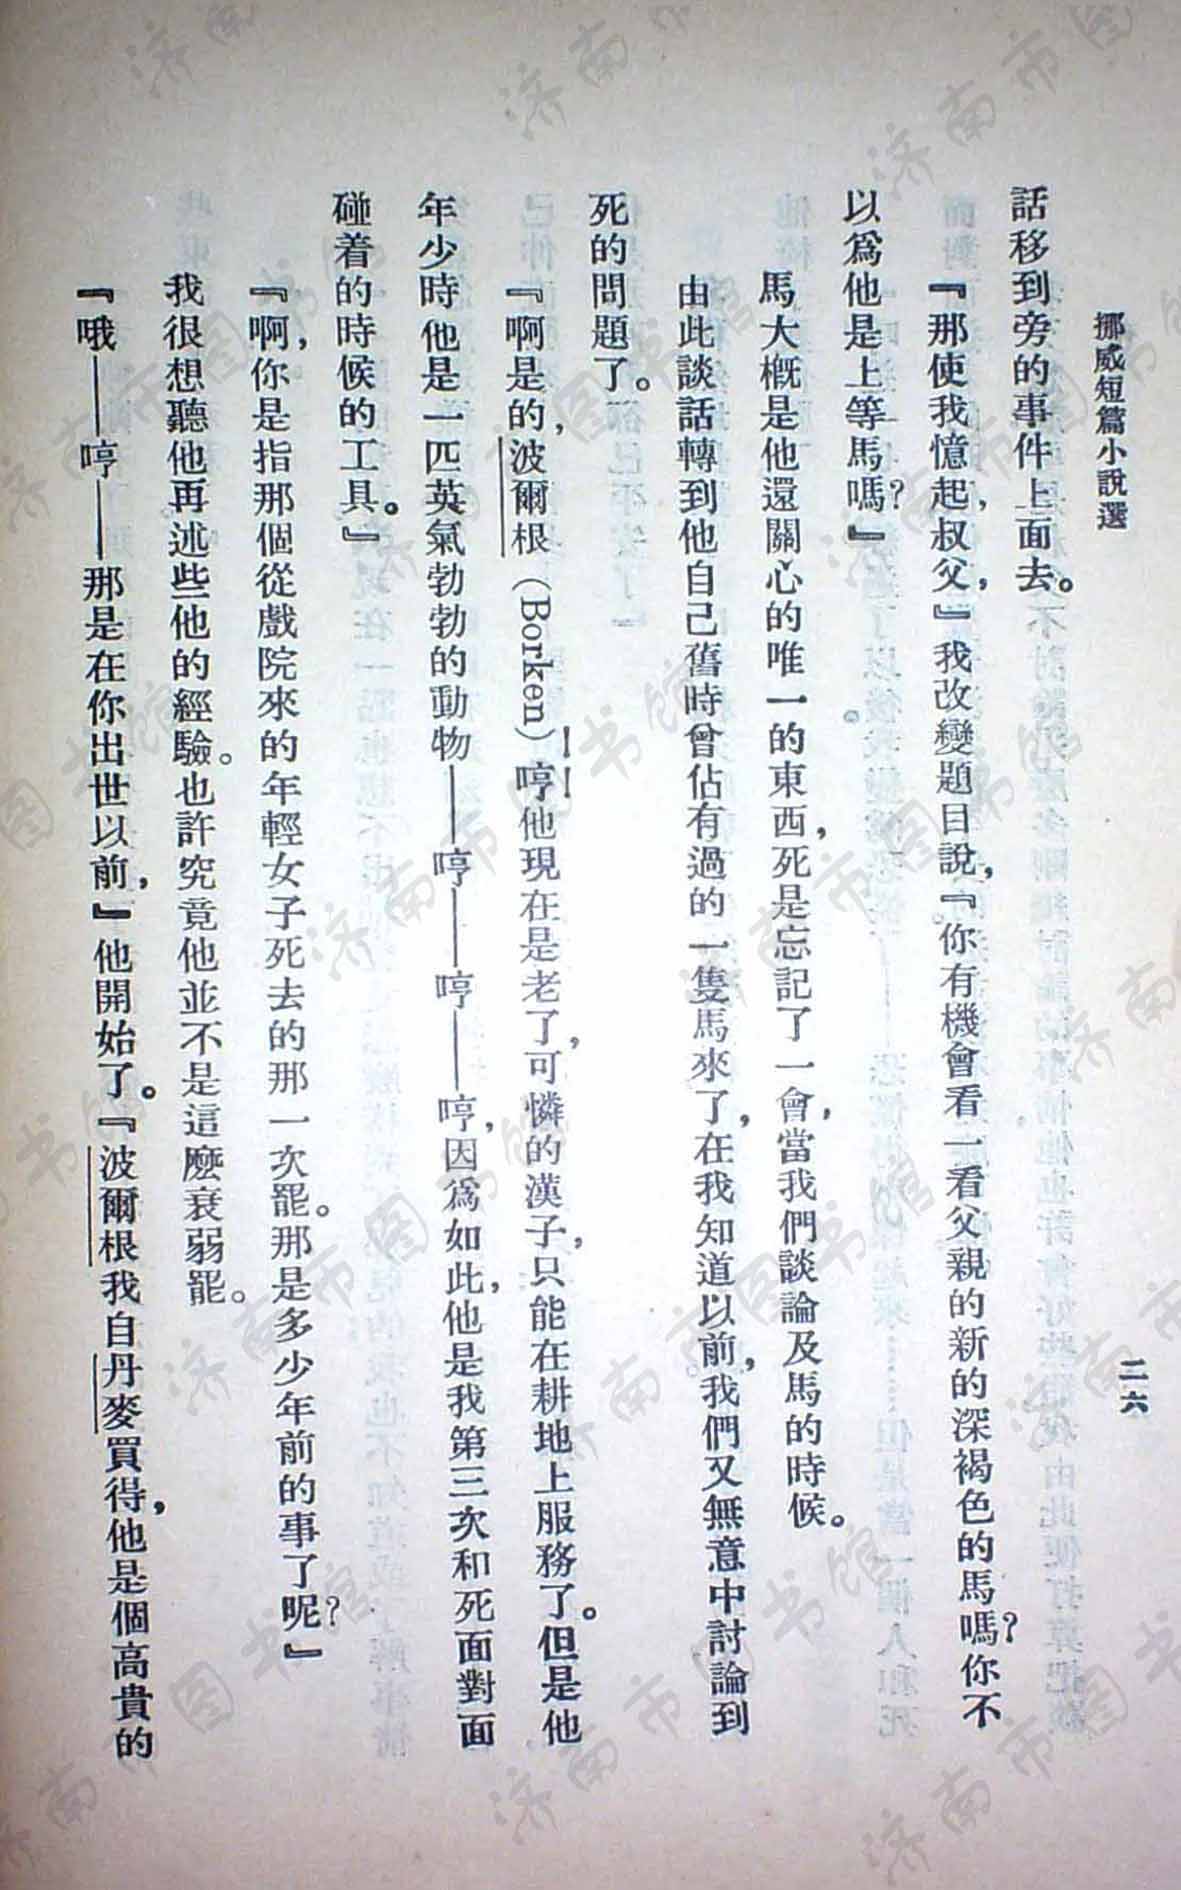 挪威短篇小說選
二六
話移到旁的事件上面去。
『那使我憶起叔父，』我改變題目說，『你有機會看一看父親的新的深褐色的馬嗎？你不
以爲他是上等馬嗎？』
馬大概是他還關心的唯一的東西，死是忘記了一會，當我們談論及馬的時候。
由此談話轉到他自己舊時曾佔有過的一隻馬來了，在我知道以前，我們又無意中討論到
死的問題了。
『啊是的，波爾根（Borken）——哼他現在是老了，可憐的漢子，只能在耕地上服務了。但是他
年少時他是一匹英氣勃勃的動物——哼——哼——哼，因爲如此，他是我第三次和死面對面
碰着的時候的工具。』
『啊，你是指那個從戲院來的年輕女子死去的那一次罷。那是多少年前的事了呢？』
我很想聽他再述些他的經驗。也許究竟他並不是這麼衰弱罷。
『哦——哼——那是在你出世以前，』他開始了。『波爾根我自丹麥買得，他是個高貴的
济南市图书馆